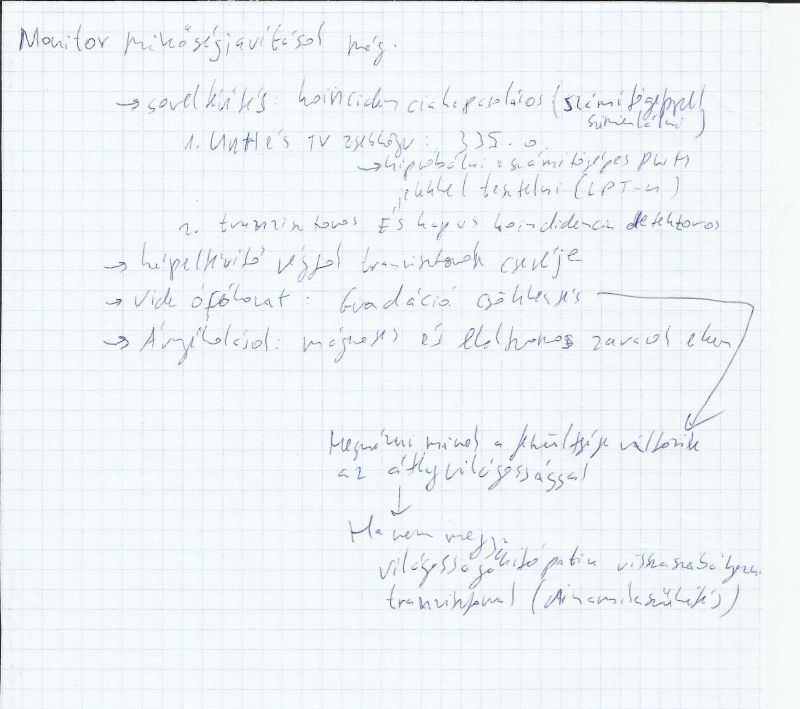 Monitor minőségjavításol még.
→ sorelkérités: koincidenciakapcsolásos (számítógéppel
szimulálni)
1. és TV zsebkönyv: 335. o.
→ kipróbálni számítógépes PWM
jelekkel tesztelni (LPT-n)
2. tranzisztoros És kapus koincidencia detektoros
→ képeltérítő végfok tranzisztorok cseréje
→ Videófokozat: Gradáció csökkenés
→ Árnyékolások: mágneses és elektromos zavarok ellen
Megnézni minek a feszültsége változik
az átlagvilágossággal
↓
Ha nem megy:
világosságállító patin visszaszabályozni
tranzisztorral (dinamikaszűkítés)